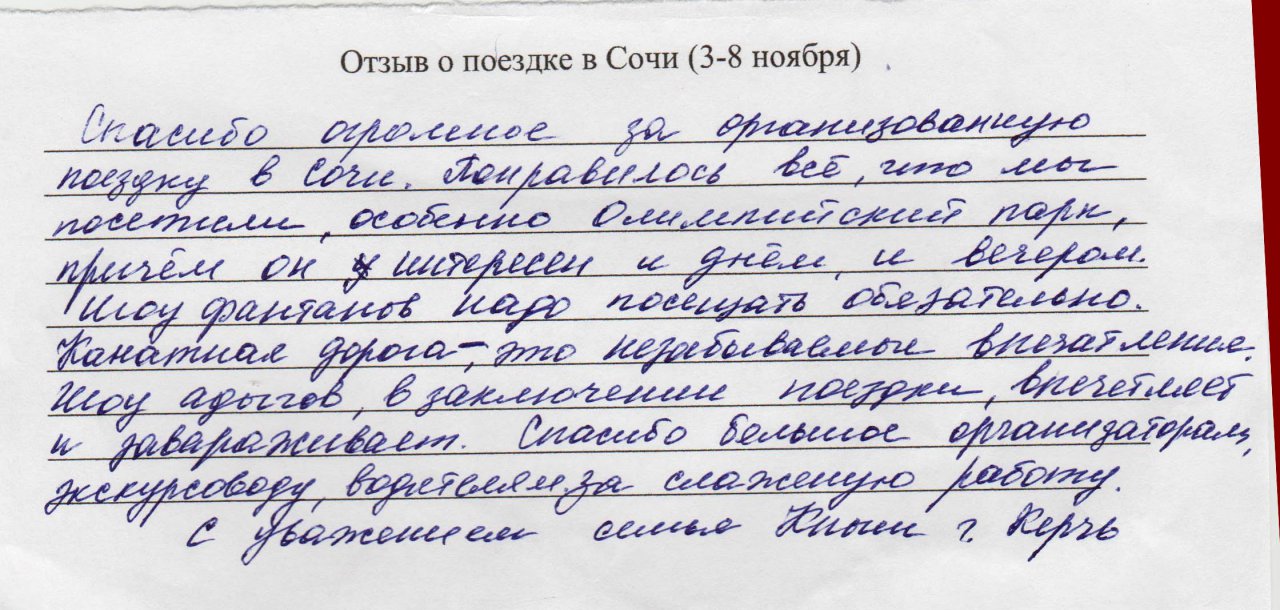 Отзыв о поездке в Сочи (3-8 ноября)
Спасибо огромное за организованную
поездку в Сочи. Понравилось всё, что мы
посетили, особенно Олимпийский парк,
причём он интересен и днём, и вечером.
Шоу фантанов надо посещать обязательно.
Канатная дорога –, это незабываемые впечатления.
Шоу адыгов, в заключении поездки, впечетляет
и завараживает. Спасибо большое организаторам,
экскурсоводу, водителям, за слаженую работу.
С уважением семья г. Керчь